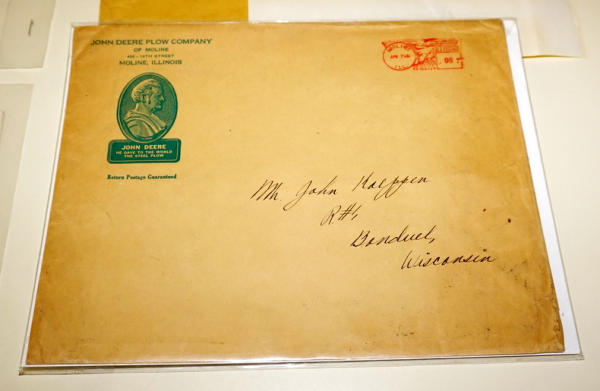 JOHN DEERE PLOW COMPANY
OF MOLINE
MOLINE, ILLINOIS
JOHN DEERE
HE GAVE TO THE WORLD
THE STEEL PLOW
Return Postage Guaranteed
MOLINE
ILL.
Mr John Koeppen
R#1
Bonduel,
Wisconsin